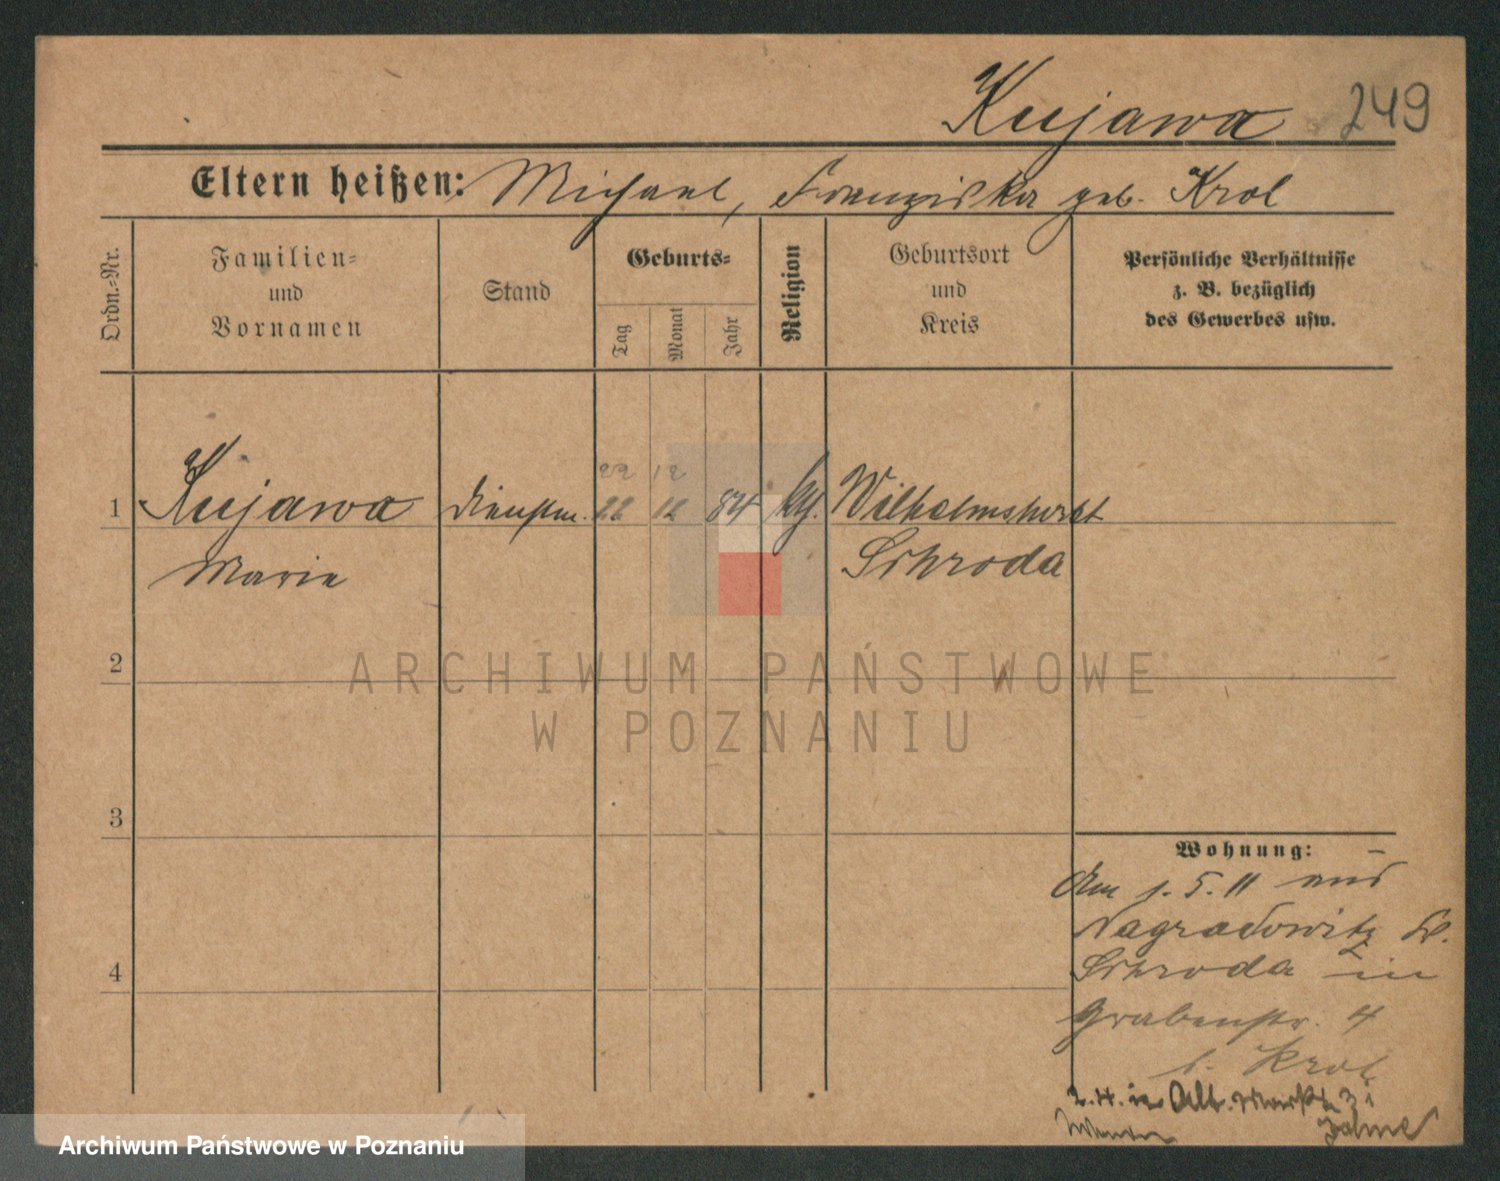 Kujawa 249
Eltern heißen: Michael, Franziska geb. Krol
Ordn.-Nr.
Familien-
und
Vornamen
Stand
Geburts-
Tag
Monat
Jahr
Religion
Geburtsort
und
Kreis
Persönliche Verhältnisse
z. B. bezüglich
des Gewerbes usw.
22 12
1 Kujawa Dienstm. 22 12 84 kth. Wilhelmshorst
Marie Schroda
2
ARCHIWUM PAŃSTWOWE
W POZNANIU
3
Wohnung:
Am 1. 5. 11 aus
Nagradowitz Kr.
Schroda in
Grabenstr. 4
b. Krol
2. 11. in Alt. Markt
Archiwum Państwowe w Poznaniu
4